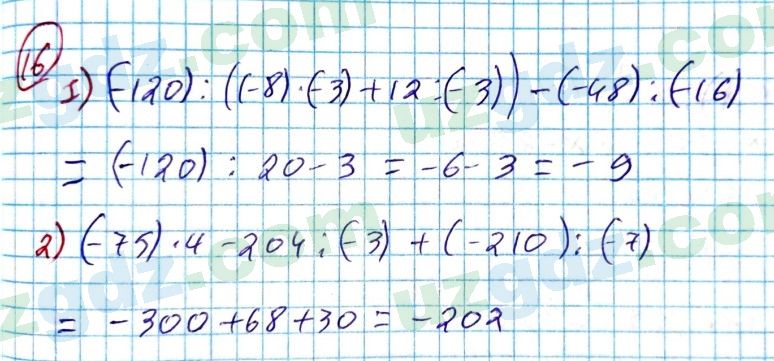 16
1) (-120) : ((-8) · (-3) + 12 : (-3)) - (-48) : (-16)
= (-120) : 20 - 3 = -6 - 3 = -9
2) (-75) · 4 - 204 : (-3) + (-210) : (-7)
= -300 + 68 + 30 = -202
uzgdz.com